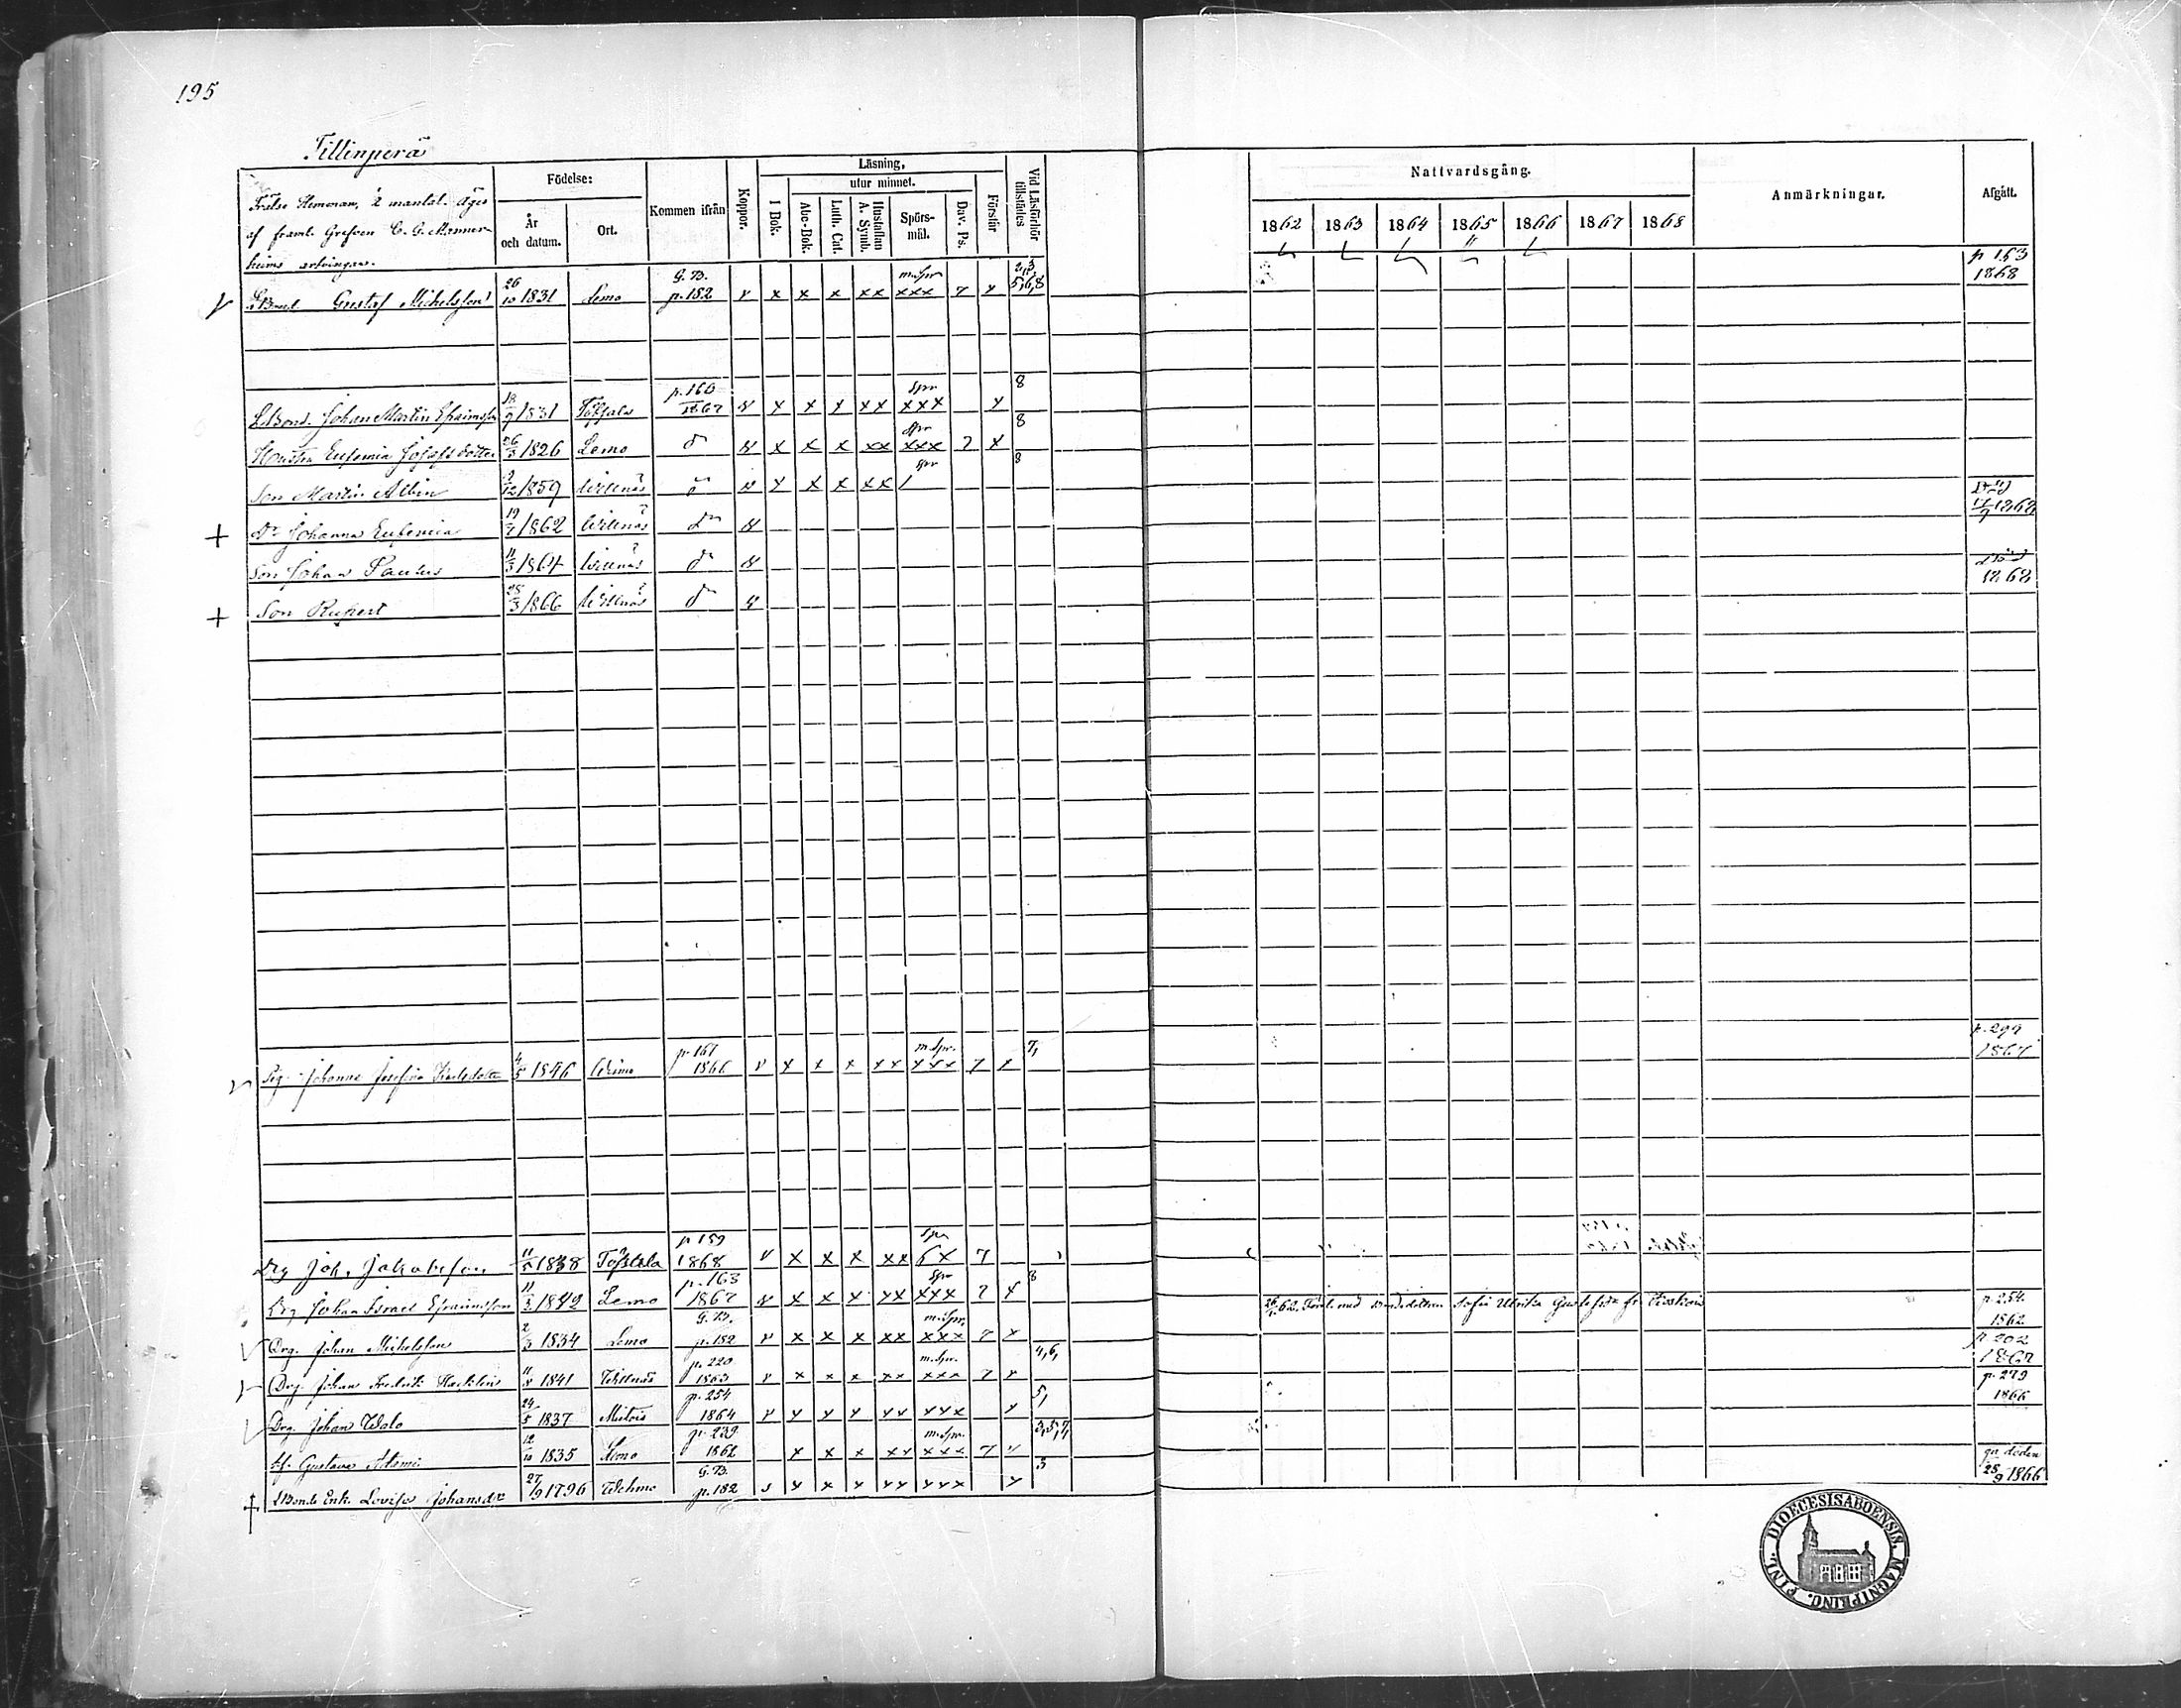 195
Tillinperä
Frälse Hemman, 2 mantal. Äges
af framl. Grefven C. G. Manner-
heims arfvingar.
Födelse:
År
och datum.
Ort.
Kommen ifrån
Koppor.
Läsning,
utur minnet.
I Bok.
Abc-Bok.
Luth. Cat.
Hustaflan
A. Symb.
Spörs-
mål.
Dav. Ps.
Förstår
Vid Läsförhör
tillstädes
Nattvardsgång.
1862 1863 1864 1865 1866 1867 1868
Anmärkningar.
Afgått.
Gustaf Michelsson 26/10 1831 Lemo G. B. p. 182 v x x x x x m.Spr xxx 7 x 2,3, 5,6,8 p 163 1868
LBond. Johan Martin Efraimsson 18/9 1831 Töfsala p. 160 1867 x x x x x Spr xxx x 8
Hustru Eufemia Josefsdotter 26/3 1826 Lemo d:o x x x xx Spr xxx 7 x 8
Son Martin Albin 9/12 1859 Willnäs x x x xx Spr 8
+ Dr Johanna Eufemia 19/7 1862 Willnäs d:o död 17/9 1868
Son Johan Paulus 11/3 1864 Willnäs d:o död 1868
+ Son Rupert 25/3 1866 Willnäs d:o
Pig. Johanna Josefina Karlsdotter 4/5 1846 Wemo p. 167 1866 v x x x x x m.Spr. xxx 7 x 7, p. 299 1867
Drg Joh. Jakobsson 11/5 1838 Töfsala p 159 1868 v x x x xx Spr 6x 7
Drg Johan Israel Efraimsson 11/3 1842 Lemo p. 163 1867 x x x xx Spr xxx 7 x 8
Drg. Johan Michelsson 2/3 1834 Lemo G. B. p. 182 v x x x xx m.Spr. xxx 7 x 26/1 62. Förl. med Sofia Ulrika p. 254. 1862
Drg. Johan Fredrik 11/8 1841 Willnäs p. 220 1863 v x x x xx m.Spr. xxx 7 x 4,6, p 202 1867
Drg. Johan Walo 24/5 1837 Mietois p. 254 1864 v x x x xx xxx x 5, p. 279 1866
Gustava Adami 12/10 1835 Lemo p. 239 1862 x x x xx m.Spr. xxx 7 x 3,5,7,
+ LBonds Enk. Lovisa Johansdr 27/9 1796 Wehmo G. B. p. 182 x x x xx xxx x 3 gn döden 28/9 1866
DIOECESIS ABOENSIS. MAGNI PRINC. FINL.